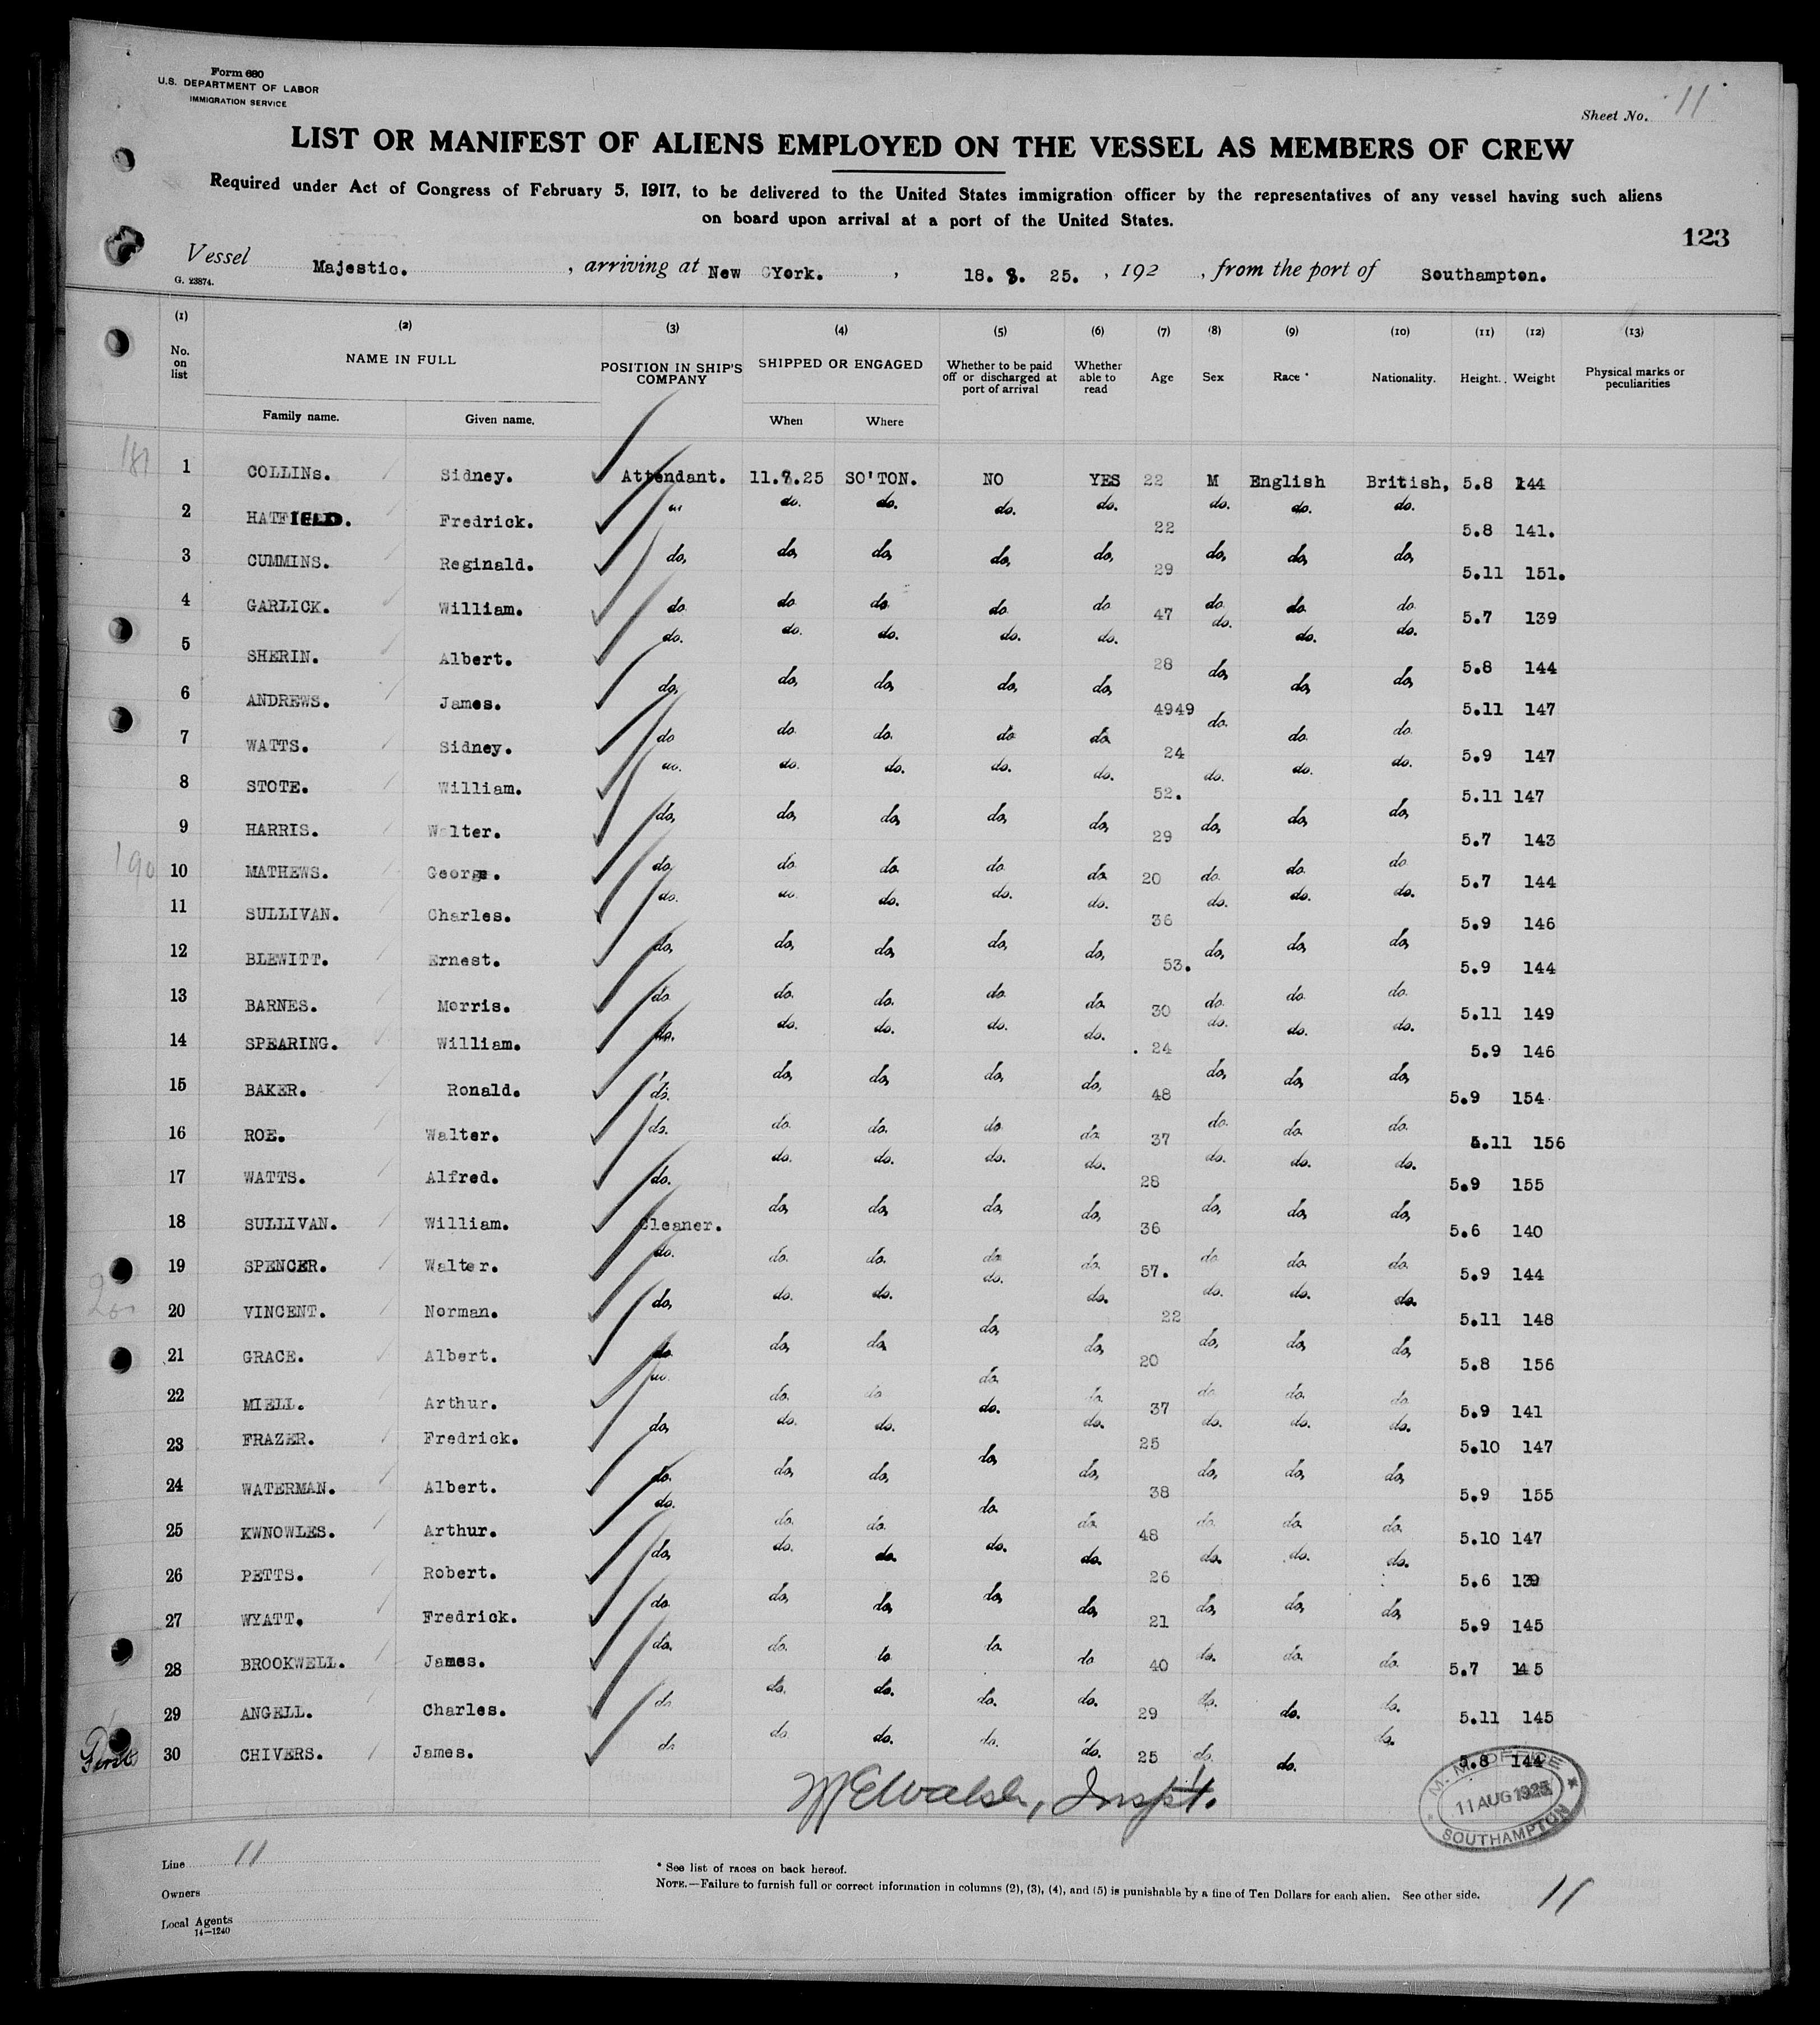 Form 680
U.S. DEPARTMENT OF LABOR
IMMIGRATION SERVICE
Sheet No. 11
LIST OR MANIFEST OF ALIENS EMPLOYED ON THE VESSEL AS MEMBERS OF CREW
Required under Act of Congress of February 5, 1917, to be delivered to the United States immigration officer by the representatives of any vessel having such aliens
on board upon arrival at a port of the United States.
123
Vessel Majestic. , arriving at New York. , 18. 8. 25. , 192 , from the port of Southampton.
G. 23874.
(1) (2) (3) (4) (5) (6) (7) (8) (9) (10) (11) (12) (13)
No. on list NAME IN FULL POSITION IN SHIP'S COMPANY SHIPPED OR ENGAGED Whether to be paid off or discharged at port of arrival Whether able to read Age Sex Race * Nationality. Height. Weight Physical marks or peculiarities
Family name. Given name. When Where
181 1 COLLINs. Sidney. Attendant. 11.7.25 SO'TON. NO YES 22 M English British, 5.8 144
2 HATFIELD. Fredrick. do. do. do. do. do. 22 do. do. do. 5.8 141.
3 CUMMINS. Reginald. do, do, do, do, do, 29 do, do, do, 5.11 151.
4 GARLICK. William. do do do do do 47 do do do 5.7 139
5 SHERIN. Albert. do. do. do. do. do. 28 do. do. do. 5.8 144
6 ANDREWS. James. do, do, do, do, do, 4949 do, do, do, 5.11 147
7 WATTS. Sidney. do do. do. do do 24 do. do. do 5.9 147
8 STOTE. William. do. do. do. do. do. 52. do. do. do. 5.11 147
9 HARRIS. Walter. do, do, do, do, do, 29 do, do, do, 5.7 143
190 10 MATHEWS. George. do do. do. do. do 20 do. do. do 5.7 144
11 SULLIVAN. Charles. do. do. do. do. do. 36 do. do. do. 5.9 146
12 BLEWITT. Ernest. do, do, do, do, do, 53. do, do, do, 5.9 144
13 BARNES. Morris. do do. do. do do 30 do. do. do. 5.11 149
14 SPEARING. William. do. do. do. do. do. 24 do. do. do. 5.9 146
15 BAKER. Ronald. do. do, do, do, do, 48 do, do, do, 5.9 154
16 ROE. Walter. do. do. do. do do. 37 do. do. do. 5.11 156
17 WATTS. Alfred. do. do. do. do. do. 28 do. do. do. 5.9 155
18 SULLIVAN. William. Cleaner. do, do, do, do, 36 do, do, do, 5.6 140
19 SPENCER. Walter. do. do. do. do. do. 57. do. do. do. 5.9 144
20 VINCENT. Norman. do, do. do. do. do. 22 do. do. do. 5.11 148
21 GRACE. Albert. do do, do, do, do, 20 do, do, do, 5.8 156
22 MIELL. Arthur. do. do. do do. do. 37 do. do. do. 5.9 141
23 FRAZER. Fredrick. do, do. do. do. do. 25 do. do. do. 5.10 147
24 WATERMAN. Albert. do. do, do, do, do, 38 do, do, do, 5.9 155
25 KWNOWLES. Arthur. do. do. do. do. do. 48 do. do. do. 5.10 147
26 PETTS. Robert. do, do. do. do. do. 26 do. do. do. 5.6 139
27 WYATT. Fredrick. do do, do, do, do, 21 do, do, do, 5.9 145
28 BROOKWELL. James. do. do. do do. do 40 do. do. do. 5.7 145
29 ANGELL. Charles. do. do. do. do. do. 29 do. do. do. 5.11 145
30 CHIVERS. James. do. do. do. do. do. 25 do. do. do. 5.8 144
WEWalsh, Insp't.
M. M. OFFICE
11 AUG 1925
SOUTHAMPTON
Line 11
Owners
Local Agents
14—1240
* See list of races on back hereof.
NOTE.—Failure to furnish full or correct information in columns (2), (3), (4), and (5) is punishable by a fine of Ten Dollars for each alien. See other side.
11